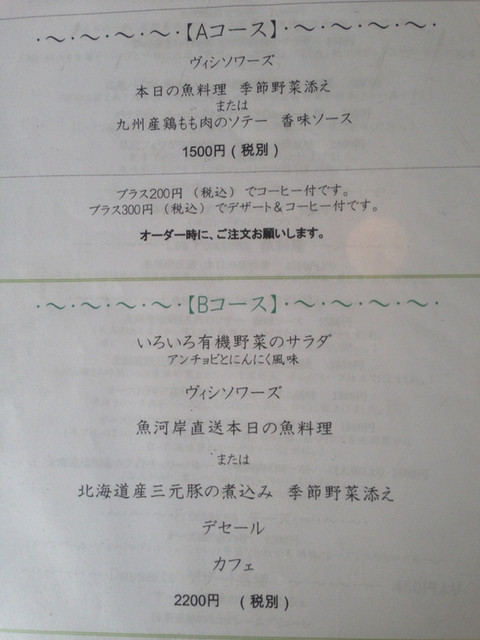 ・～・～・～・～・【Aコース】・～・～・～・～・
ヴィシソワーズ
本日の魚料理 季節野菜添え
または
九州産鶏もも肉のソテー 香味ソース
1500円（税別）
プラス200円（税込）でコーヒー付です。
プラス300円（税込）でデザート＆コーヒー付です。
オーダー時に、ご注文お願いします。
・～・～・～・～・【Bコース】・～・～・～・～・
いろいろ有機野菜のサラダ
アンチョビとにんにく風味
ヴィシソワーズ
魚河岸直送本日の魚料理
または
北海道産三元豚の煮込み 季節野菜添え
デセール
カフェ
2200円 （税別）